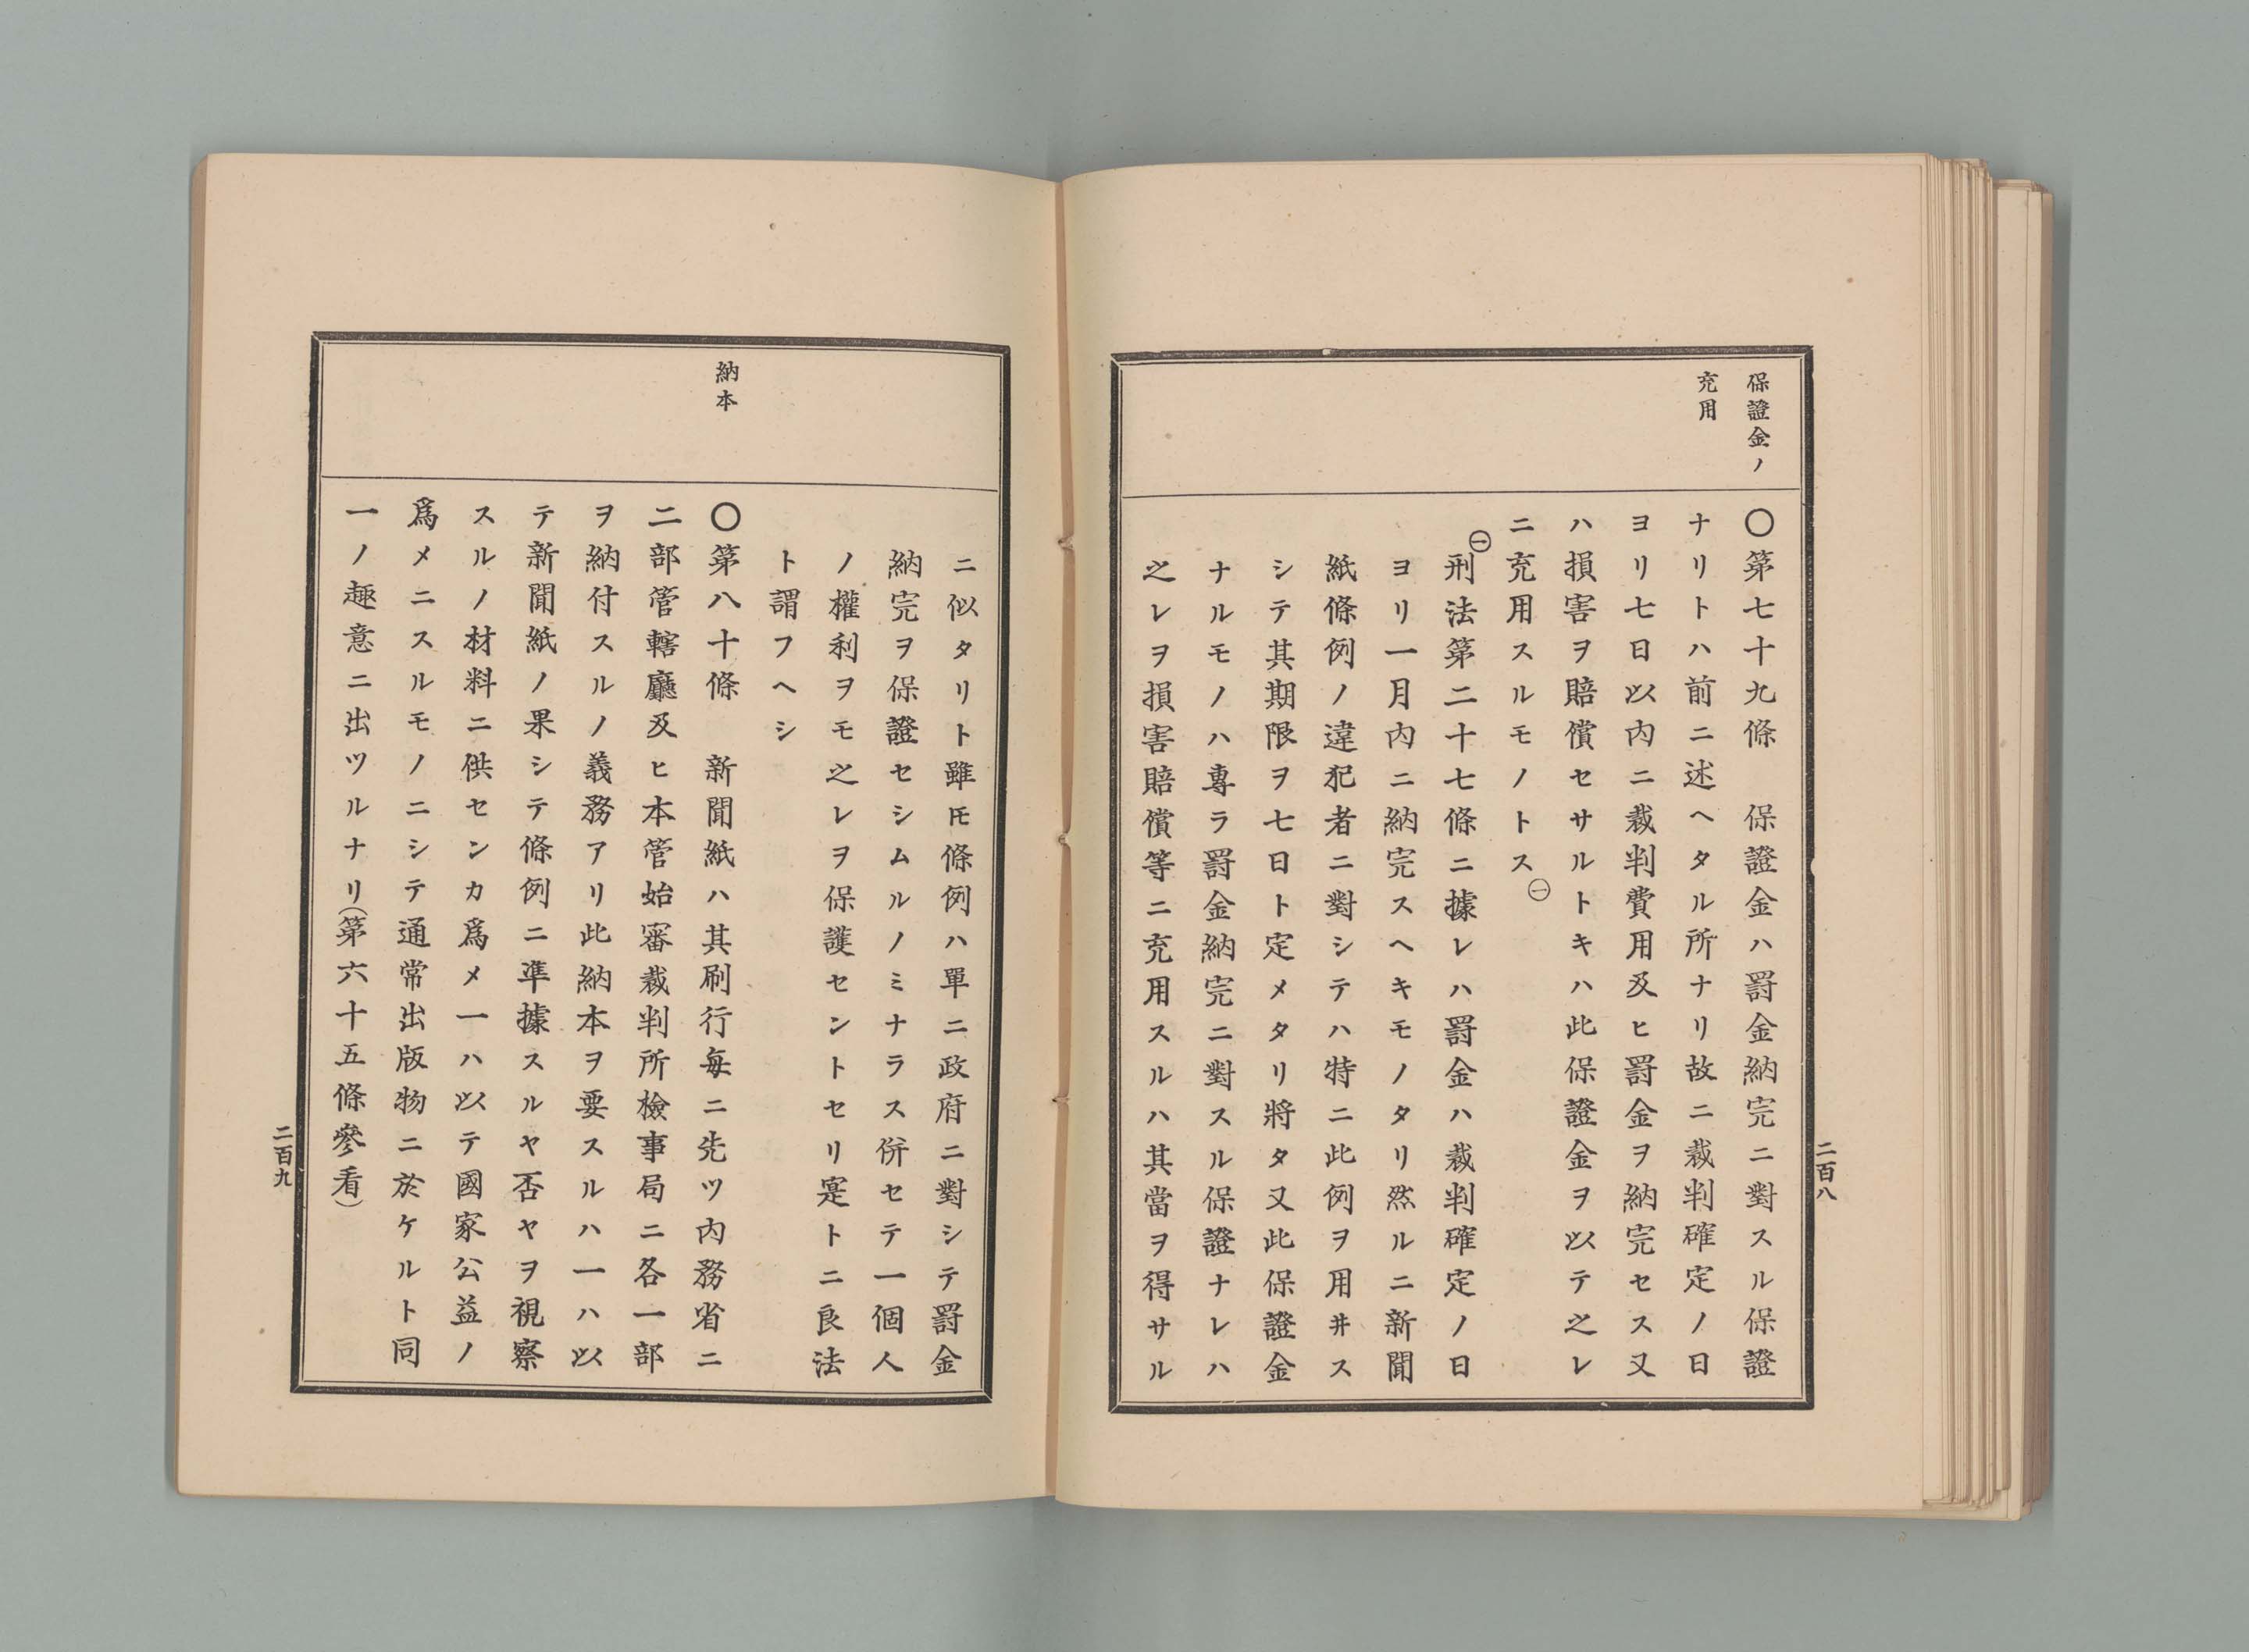 保證金ノ
充用
〇第七十九條　保證金ハ罰金納完ニ對スル保證
ナリトハ前ニ述ヘタル所ナリ故ニ裁判確定ノ日
ヨリ七日以内ニ裁判費用及ヒ罰金ヲ納完セス又
ハ損害ヲ賠償セサルトキハ此保證金ヲ以テ之レ
ニ充用スルモノトス㊀
㊀刑法第二十七條ニ據レハ罰金ハ裁判確定ノ日
ヨリ一月内ニ納完スヘキモノタリ然ルニ新聞
紙條例ノ違犯者ニ對シテハ特ニ此例ヲ用ヰス
シテ其期限ヲ七日ト定メタリ將タ又此保證金
ナルモノハ專ラ罰金納完ニ對スル保證ナレハ
之レヲ損害賠償等ニ充用スルハ其當ヲ得サル
二百八
ニ似タリト雖𪜈條例ハ單ニ政府ニ對シテ罰金
納完ヲ保證セシムルノミナラス併セテ一個人
ノ權利ヲモ之レヲ保護セントセリ寔トニ良法
ト謂フヘシ
納本
〇第八十條　新聞紙ハ其刷行每ニ先ツ内務省ニ
二部管轄廳及ヒ本管始審裁判所檢事局ニ各一部
ヲ納付スルノ義務アリ此納本ヲ要スルハ一ハ以
テ新聞紙ノ果シテ條例ニ準據スルヤ否ヤヲ視察
スルノ材料ニ供センカ爲メ一ハ以テ國家公益ノ
爲メニスルモノニシテ通常出版物ニ於ケルト同
一ノ趣意ニ出ツルナリ(第六十五條參看)
二百九